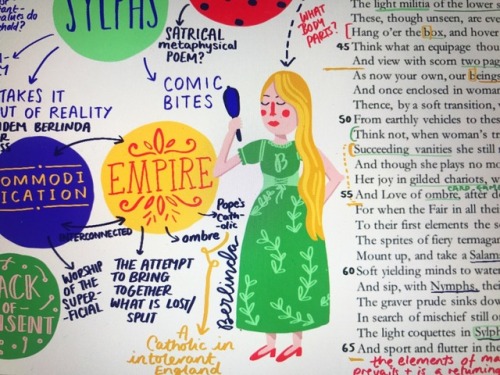 SYLPHS
SATRICAL
metaphysical
POEM?
COMIC
BITES
WHAT
BODY
PARTS?
TAKES IT
OUT OF REALITY
BERLINDA
OMMODI
ICATION
EMPIRE
B
INTERCONNECTED
WORSHIP
OF THE
SUPER-
FICIAL
THE ATTEMPT
TO BRING
TOGETHER
WHAT IS LOST/
SPLIT
ombre
Pope's
Cath-
olic
Berlinda
A
Catholic in
intolerant
England
ACK
OF
NSENT
The light militia of the lower s
These, though unseen, are eve
Hang o'er the box, and hover
45 Think what an equipage thou
And view with scorn two pag
As now your own, our beings
And once enclosed in woman
Thence, by a soft transition,
50 From earthly vehicles to these
Think not, when woman's tr
Succeeding vanities she still r
And though she plays no mo
Her joy in gilded chariots, w
card game
55 And Love of ombre, after de
For when the Fair in all thei
To their first elements the so
The sprites of fiery termagar
Mount up, and take a Salam
60 Soft yielding minds to water
And sip, with Nymphs, thei
The graver prude sinks dow
In search of mischief still or
The light coquettes in Sylph
65 And sport and flutter in the
the elements of ma